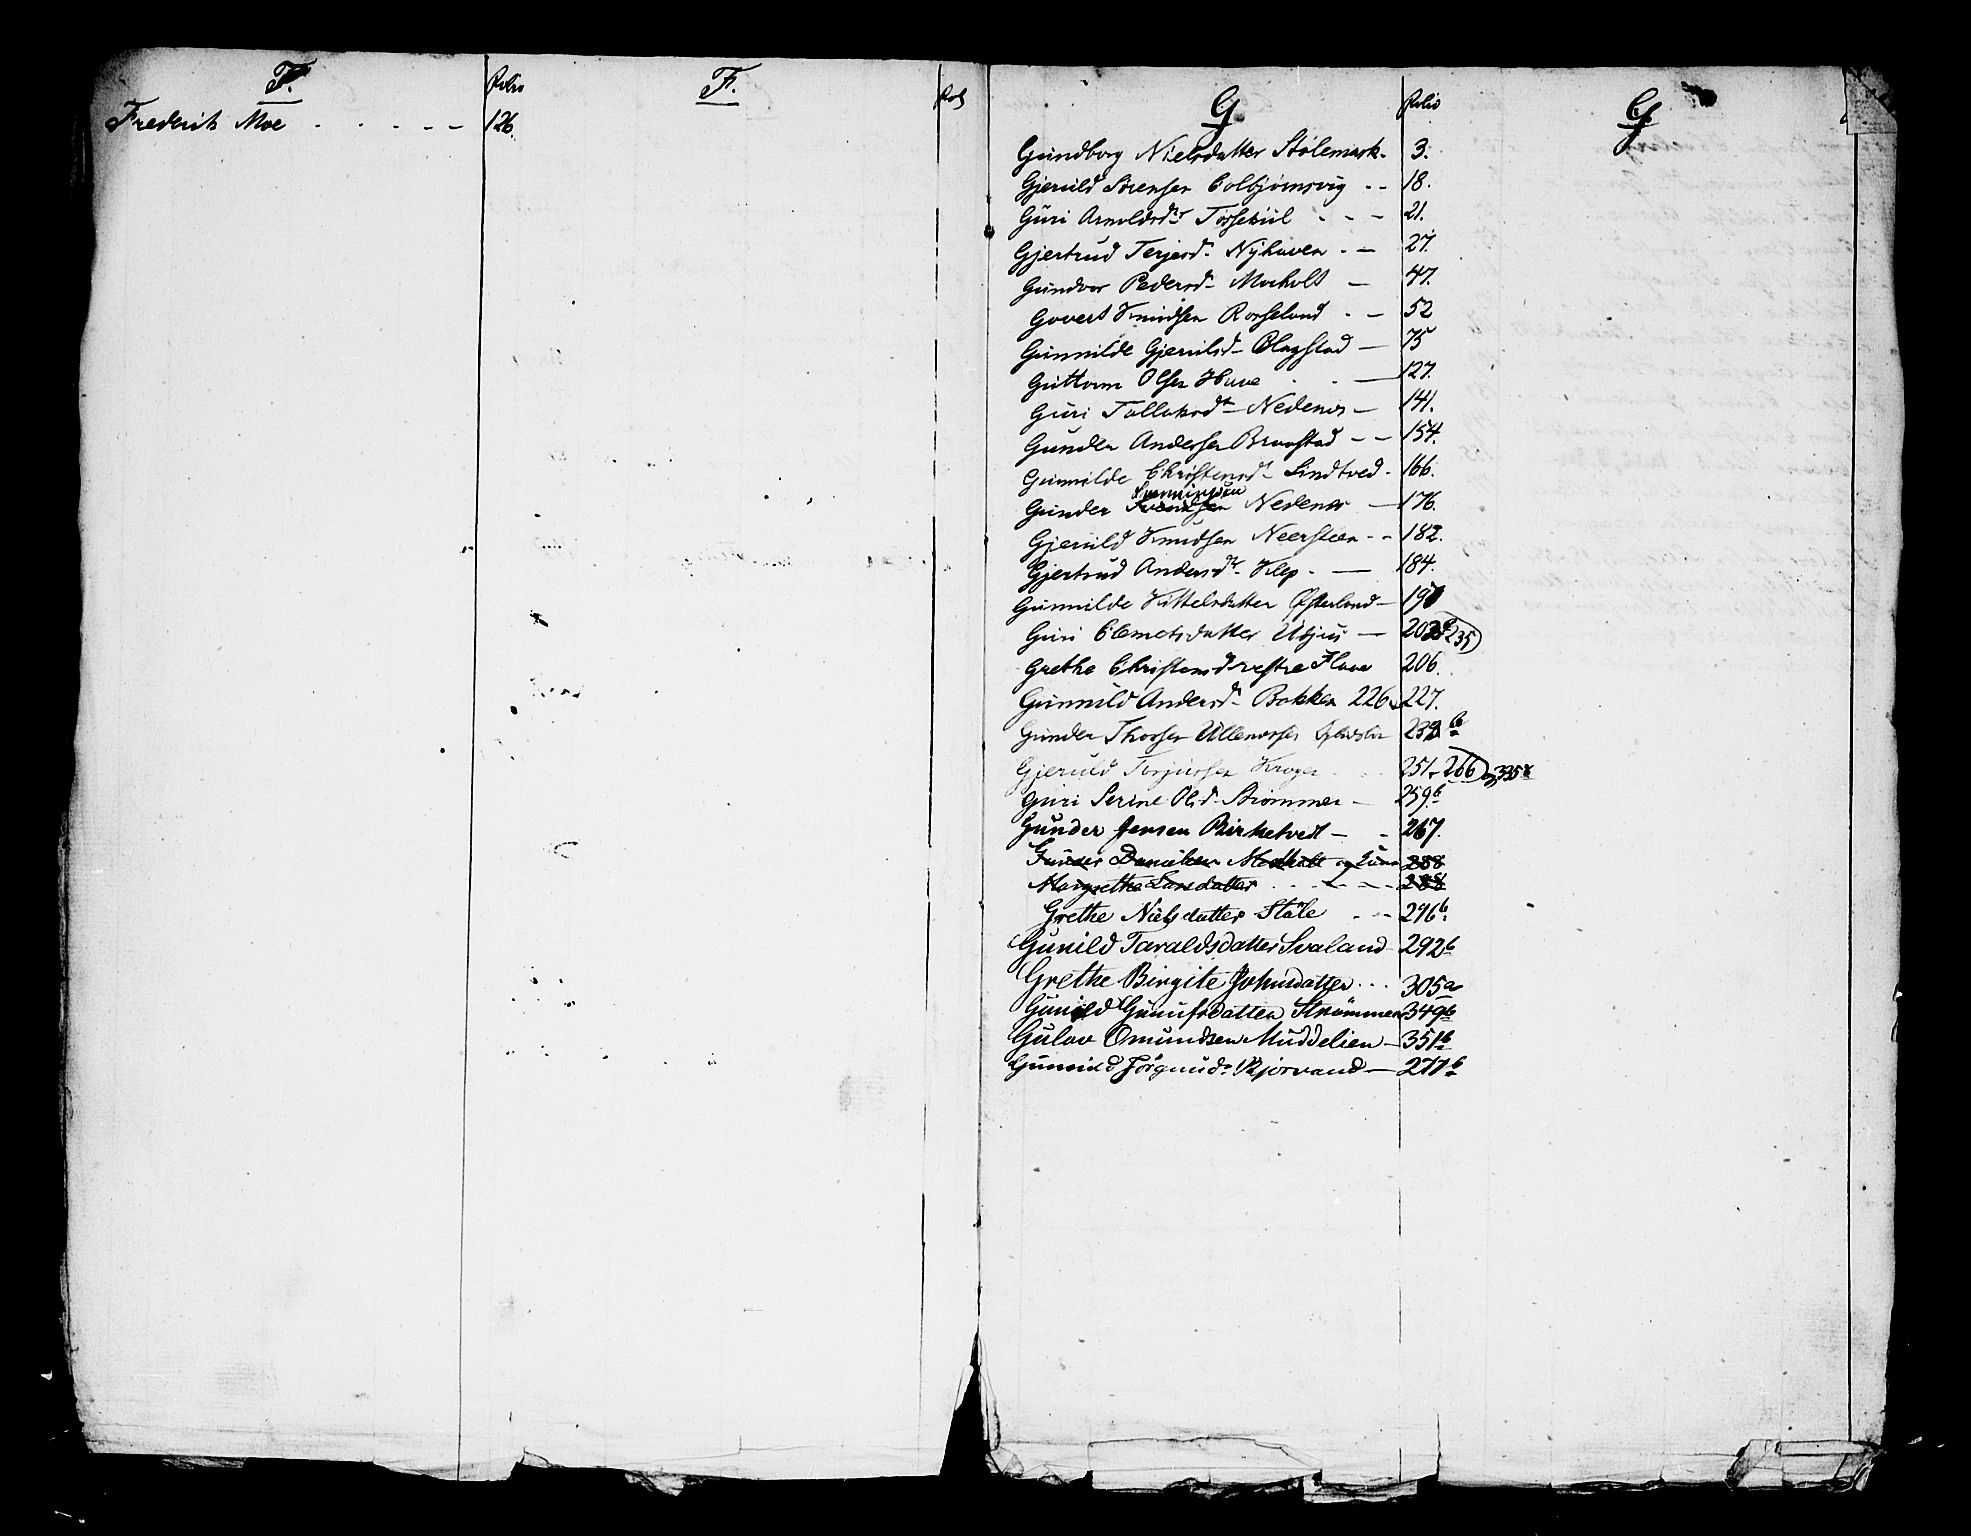 F.
Folio
F.
Fol
Frederik Moe - - - - - 126.
G
Folio
G
Gundborg Nielsdatter Stølemark - 3.
Gjeruld Sørensen Colbjørnsvig - - 18.
Guri Arnoldsdr Torsekiil - - - 21.
Gjertrud Terjesd. Nyhaven - - 27.
Gundvor Pedersd- Moeholt - 47.
Govert Knudsen Rosseland - - 52
Gunnilde Gjerulsd- Clagstad - 75
Guttorm Olsen Have - - - 127.
Guri Tallaksdt- Nedenes - 141.
Gunder Andersen Braastad - - 154.
Gunnilde Christensdt- Lindtved - 166.
Gunder Nedenes - 176.
Gjeruld Knudsen Neersteen - - 182.
Gjertrud Andersdr- Klep - - 184.
Gunnilde Kittelsdatter Østerland -
Guri Clemetsdatter Udjus - 235
Grethe Christensd vestre Flaae 206
Gunnild Andersd- Bakken 226, 227.
Gunder Ullenæsset 239b
Gjeruld Terjussen Kroger - - 251, 266
Guri Serine Olsd. Strømmen - 259b
Gunder Jensen Birketvedt - - 267.
Daniels og 288
Margrethe Larsdatter - - - 288
Grethe Nielsdatter Støle - - 296b
Gunild Taraldsdatter Svaland 292b
Grethe Birgite Johnsdatter . . . 305a
Gunild Gunufsdatter Strømmen 349b
Gulov Omundsen Muddelien - 351b
Gunnild Jörgund. Bjorvand - 277b